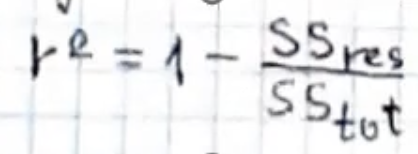 r² = 1 - SSres/SStot